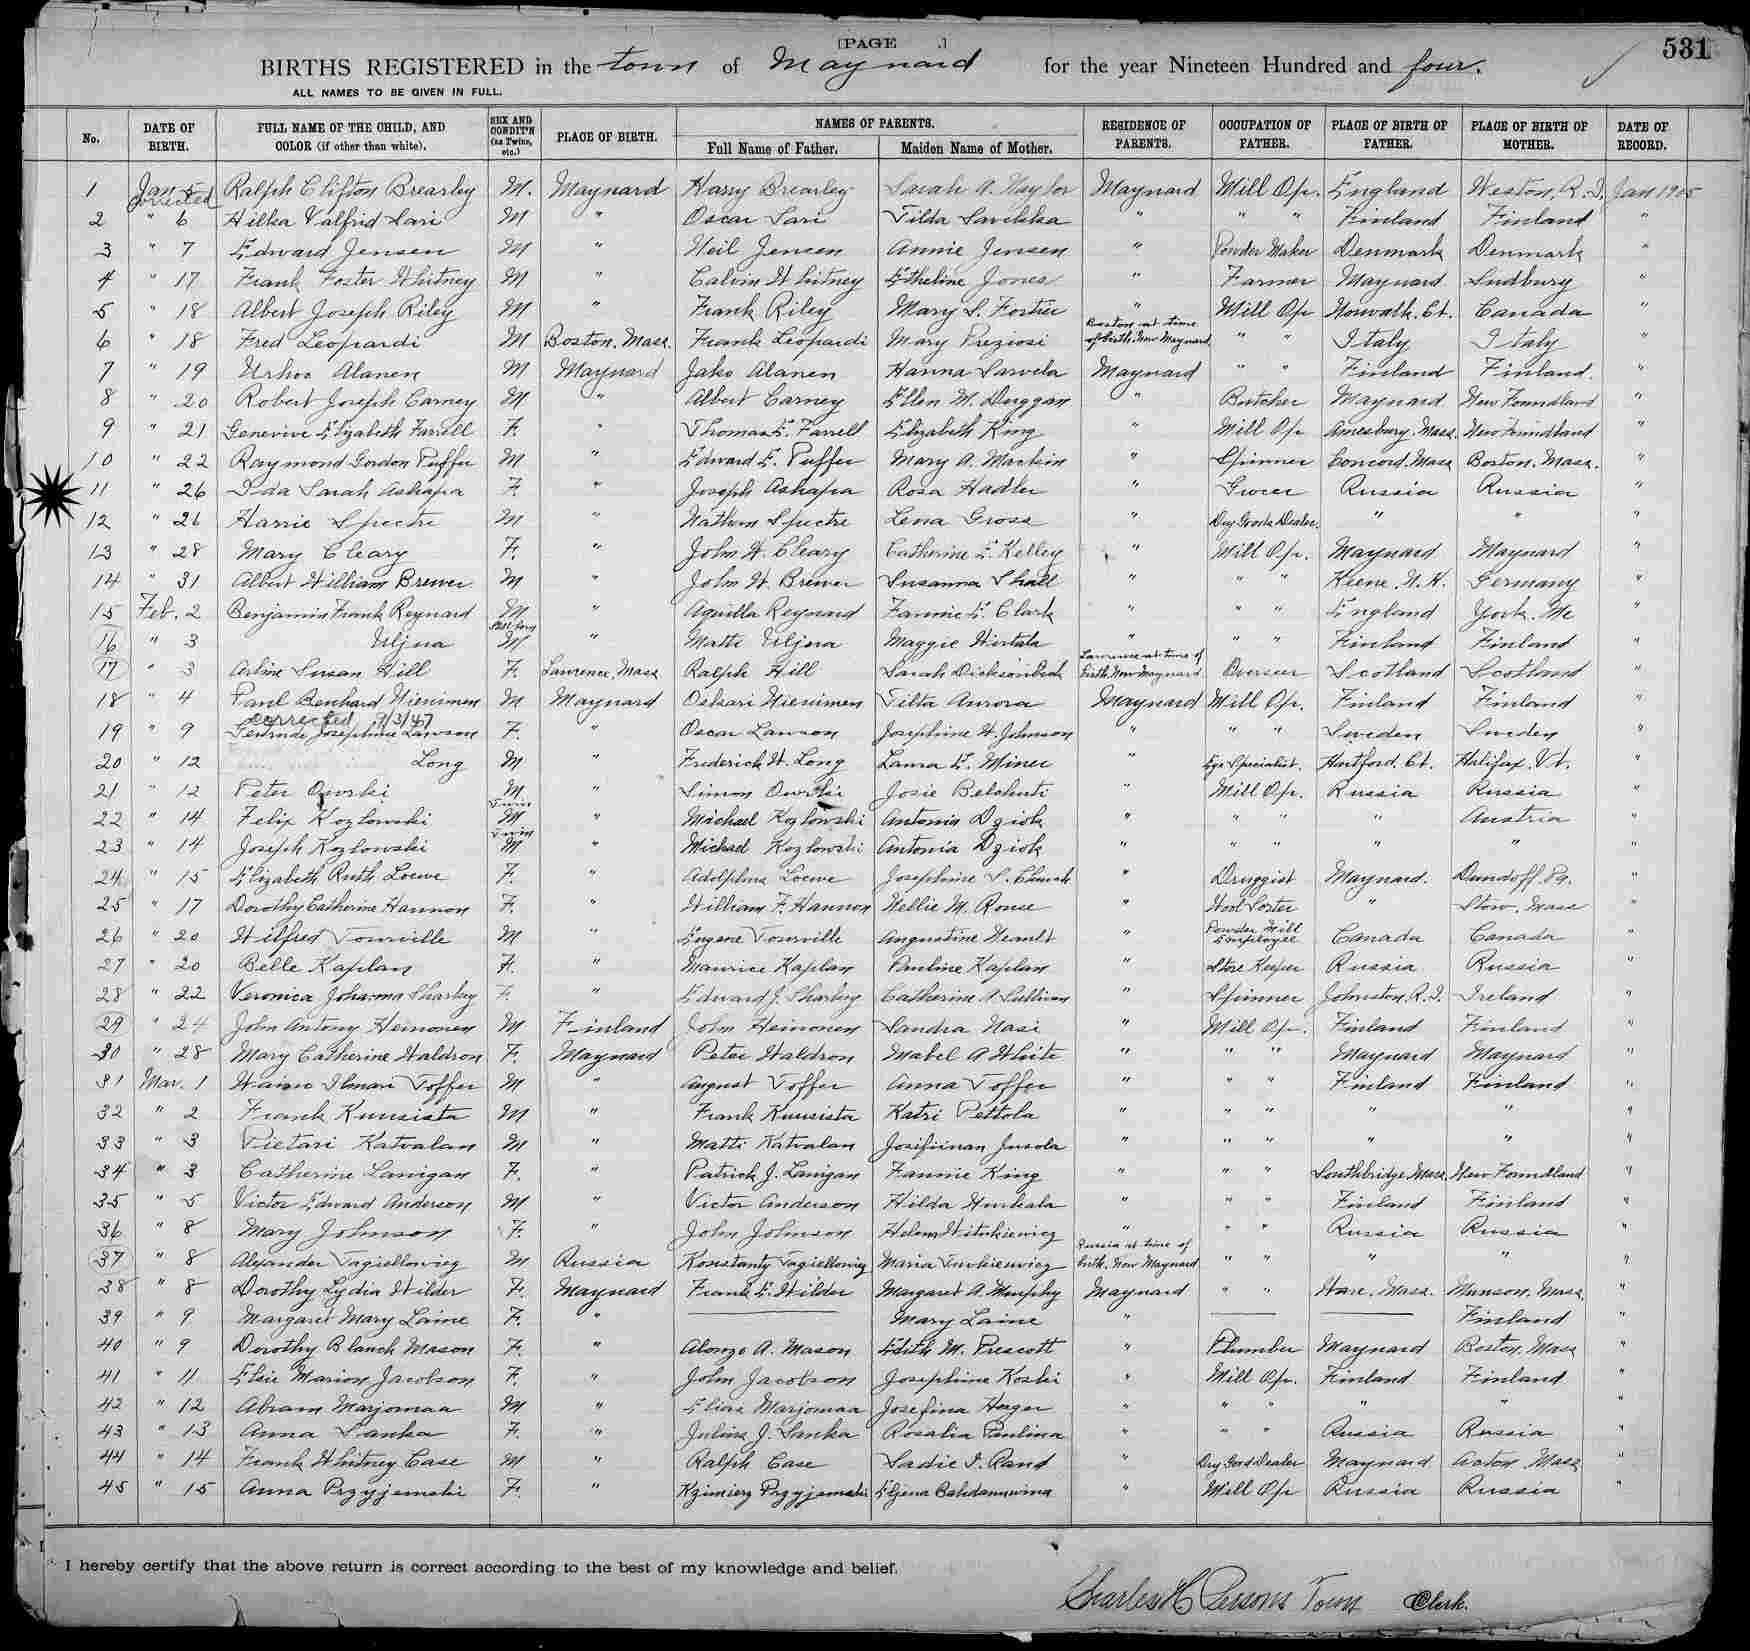 [PAGE .]
531
BIRTHS REGISTERED in the town of Maynard for the year Nineteen Hundred and four.
ALL NAMES TO BE GIVEN IN FULL.
No. DATE OF BIRTH. FULL NAME OF THE CHILD, AND COLOR (if other than white). SEX AND CONDIT'N (as Twins, etc.) PLACE OF BIRTH. NAMES OF PARENTS. Full Name of Father. Maiden Name of Mother. RESIDENCE OF PARENTS. OCCUPATION OF FATHER. PLACE OF BIRTH OF FATHER. PLACE OF BIRTH OF MOTHER. DATE OF RECORD.
1 Jan 5 corrected Ralph Clifton Brearley M. Maynard Harry Brearley Sarah A. Naylor Maynard Mill Op. England Weston, R.I. Jan 1905
2 " 6 Hilka Valfrid Sari M " Oscar Sari Tilda " " " Finland Finland "
3 " 7 Edward Jensen M " Neil Jensen Annie Jensen " Powder Maker Denmark Denmark "
4 " 17 Frank Foster Whitney M " Calvin Whitney Etheline Jones " Farmer Maynard Sudbury "
5 " 18 Albert Joseph Riley M " Frank Riley Mary S. Fortier " Mill Op Norwalk, Ct. Canada "
6 " 18 Fred Leopardi M Boston, Mass. Frank Leopardi Mary Preziosi Boston at time of birth. Now Maynard " " Italy Italy "
7 " 19 Urhoo Alanen M Maynard Jako Alanen Hanna Sarvela Maynard " " Finland Finland. "
8 " 20 Robert Joseph Carney M " Albert Carney Ellen M. Duggan " Butcher Maynard New Foundland "
9 " 21 Genevive Elizabeth Farrell F. " Thomas E. Farrell Elizabeth King " Mill Op Amesbury, Mass. New Foundland "
10 " 22 Raymond Gordon Puffer M " Edward E. Puffer Mary A. Martin " Spinner Concord, Mass Boston, Mass. "
11 " 26 Ida Sarah Ashapa F. " Joseph Ashapa Rosa Hadler " Grocer Russia Russia "
12 " 26 Harrie Spectre M " Nathan Spectre Lena Gross " Dry Goods Dealer. " " "
13 " 28 Mary Cleary F. " John W. Cleary Catherine E. Kelley " Mill Op. Maynard Maynard "
14 " 31 Albert William Brewer M " John W. Brewer Susanna Shall " " " Keene, N.H. Germany "
15 Feb. 2 Benjamin Frank Reynard M " Aquilla Reynard Fannie E. Clark " " " England York, Me "
16 " 3 Uljua Still born M " Matti Uljua Maggie Hirtala " " " Finland Finland "
17 " 3 Arline Susan Hill F. Lawrence, Mass Ralph Hill Sarah Dickson Lawrence at time of birth. Now Maynard Overseer Scotland Scotland "
18 " 4 Paul Benhard Nieminen M Maynard Oskari Nieminen Tilta Aurora Maynard Mill Op. Finland Finland "
19 " 9 corrected 7/3/47 Gertrude Josephine Lawson F. " Oscar Lawson Josephine W. Johnson " " " Sweden Sweden "
20 " 12 Long M " Frederick W. Long Laura E. Miner " Eye Specialist. Hartford, Ct. Halifax, Vt. "
21 " 12 Peter Owski M " Simon Owski Josie " Mill Op. Russia Russia "
22 " 14 Felix Kozlowski Twin M " Michael Kozlowski Antonia Dziok " " " " Austria "
23 " 14 Joseph Kozlowski Twin M " Michael Kozlowski Antonia Dziok " " " " " "
24 " 15 Elizabeth Ruth Loewe F. " Adolphus Loewe Josephine S. Church " Druggist Maynard. Dundoff, Pa. "
25 " 17 Dorothy Catherine Hannon F. " William F. Hannon Nellie M. Rouse " Wool Sorter " Stow, Mass "
26 " 20 Wilfred Tourville M " Eugene Tourville Augustine Heault " Powder Mill Employee Canada Canada "
27 " 20 Belle Kaplan F. " Maurice Kaplan Pauline Kaplan " Store Keeper Russia Russia "
28 " 22 Veronica Johanna Sharkey F. " Edward J. Sharkey Catherine A. Sullivan " Spinner Johnston, R.I. Ireland "
29 " 24 John Antony Heinonen M Finland John Heinonen Sandra Nasi " Mill Op. Finland Finland "
30 " 28 Mary Catherine Waldron F. Maynard Peter Waldron Mabel A White " " " Maynard Maynard "
31 Mar. 1 Waino Ilmari Toffer M " August Toffer Anna Toffer " " " Finland Finland "
32 " 2 Frank Kuusista M " Frank Kuusista Katri Pettola " " " " " "
33 " 3 Pietari Katvalan M " Matti Katvalan Josifiinan Jusola " " " " " "
34 " 3 Catherine Lanigan F. " Patrick J. Lanigan Fannie King " " " Southbridge, Mass. New Foundland "
35 " 5 Victor Edward Anderson M " Victor Anderson Hilda " " " Finland Finland "
36 " 8 Mary Johnson F. " John Johnson Helena Witukiewicz " " " Russia Russia "
37 " 8 Alexander Jagiellowicz M Russia Konstanty Jagiellowicz Maria Russia at time of birth. Now Maynard " " " " "
38 " 8 Dorothy Lydia Wilder F. Maynard Frank E. Wilder Margaret A. Murphy Maynard " " Ware, Mass. Munson, Mass. "
39 " 9 Margaret Mary Laine F. " Mary Laine " Finland "
40 " 9 Dorothy Blanch Mason F. " Alonzo A. Mason Edith M. Prescott " Plumber Maynard Boston, Mass "
41 " 11 Elsie Marion Jacobson F. " John Jacobson Josephine Koski " Mill Op. Finland Finland "
42 " 12 Abram Marjomaa M " Elias Marjomaa Josefina Heger " " " " " "
43 " 13 Anna Sanka F. " Julius J. Sanka Rosalia Paulina " " " Russia Russia "
44 " 14 Frank Whitney Case M " Ralph Case Sadie I. Rand " Dry Good Dealer Maynard Acton Mass "
45 " 15 Anna Przyjemski F. " Kzimierz Przyjemski " Mill Op Russia Russia "
I hereby certify that the above return is correct according to the best of my knowledge and belief.
Charles H Persons Town Clerk.